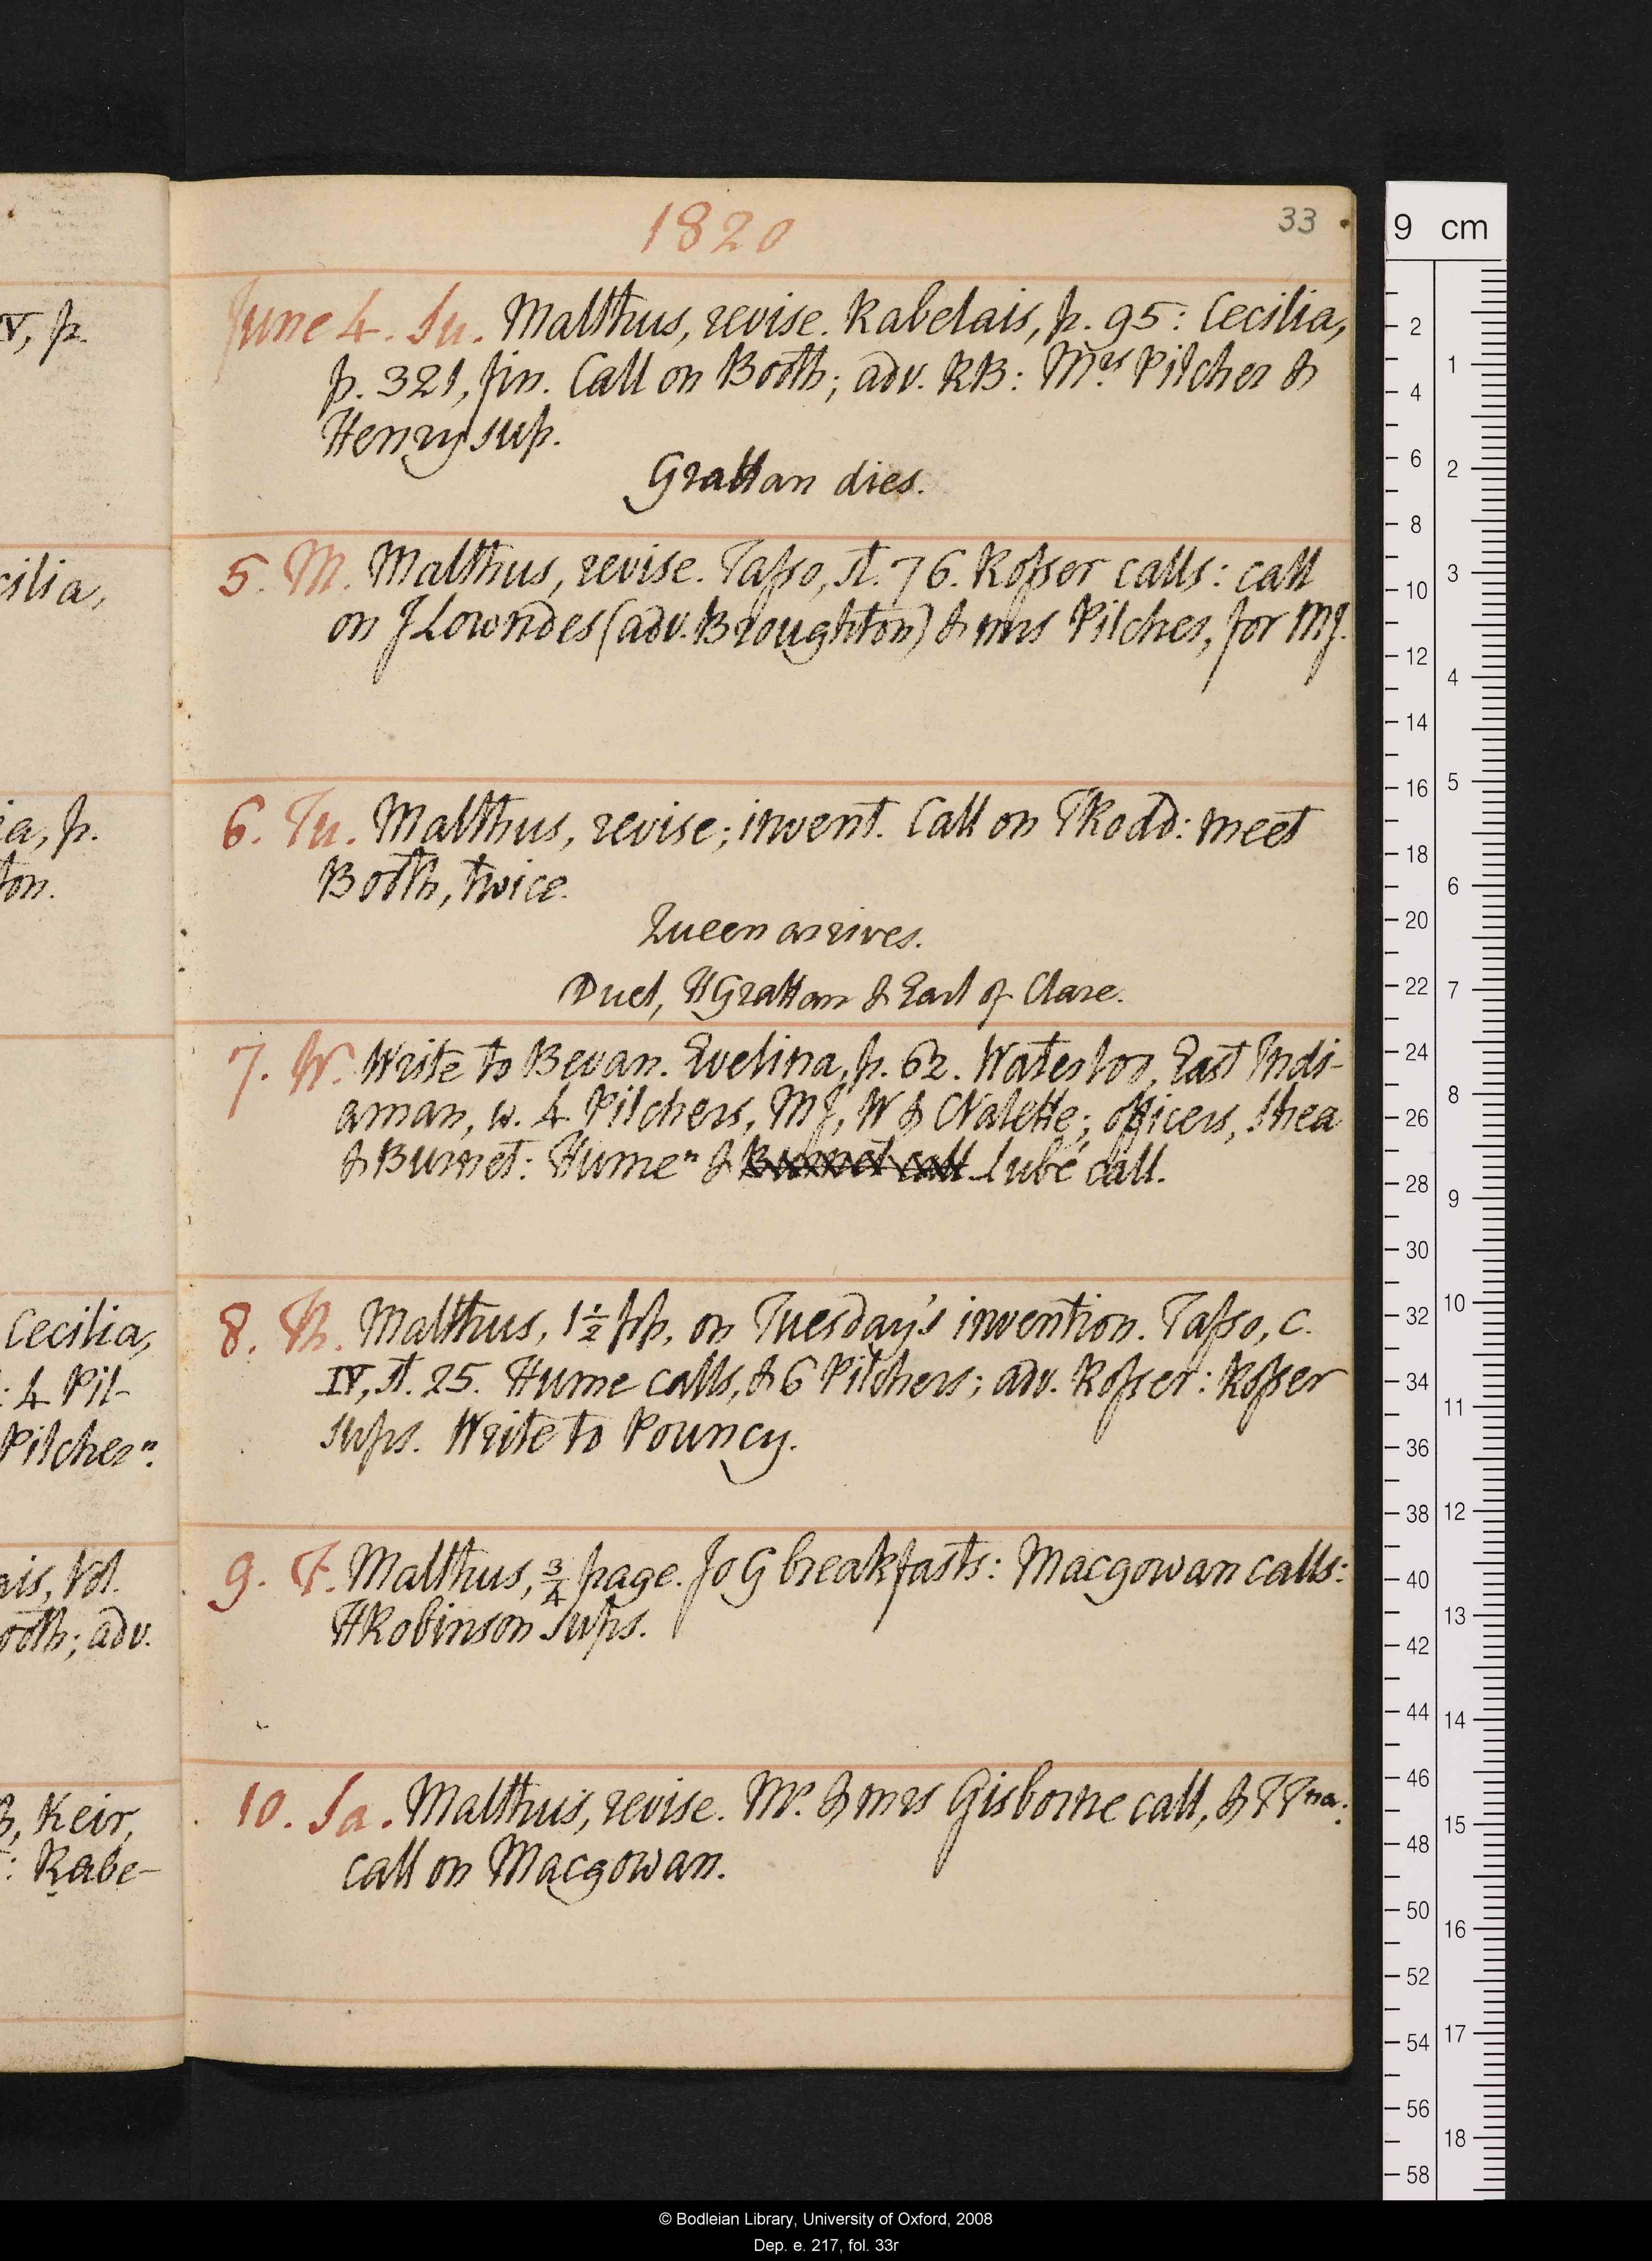 1820
33
June 4. Su. Malthus, revise. Rabelais, p. 95: Cecilia,
p. 321, fin. Call on Booth; adv. RB: Mrs Pilcher &
Henry sup.
Grattan dies.
5. M. Malthus, revise. Tasso, st. 76. Rosser calls: call
on J Lowndes (adv. Broughton) & mrs Pilcher, for MJ.
6. Tu. Malthus, revise; invent. Call on T Rodd: meet
Booth, twice.
Queen arrives.
Duel, H Grattan & Earl of Clare.
7. W. Write to Bevan. Evelina, p. 62. Waterloo, East Indi-
aman, w. 4 Pilchers, MJ, W & C Valette; officers, Shea
& Burnet: Hume n & Burnet call Lubé call.
8. Th. Malthus, 1½ pp, on Tuesday's invention. Tasso, c.
IV, st. 25. Hume calls, & 6 Pilchers; adv. Rosser: Rosser
sups. Write to Pouncy.
9. F. Malthus, ¾ page. Jo G breakfasts: Macgowan calls:
H Robinson sups.
10. Sa. Malthus, revise. Mr. & mrs Gisborne call, & TT na:
call on Macgowan.
V, p.
cilia,
ia, p.
ton.
Cecilia,
: 4 Pil-
Pilcher n:
ais, Vol.
ooth; adv.
Keir,
: Rabe-
9 cm
2
4
6
8
10
12
14
16
18
20
22
24
26
28
30
32
34
36
38
40
42
44
46
48
50
52
54
56
58
1
2
3
4
5
6
7
8
9
10
11
12
13
14
15
16
17
18
© Bodleian Library, University of Oxford, 2008
Dep. e. 217, fol. 33r